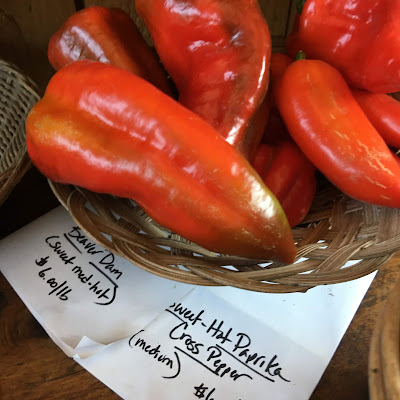 Beaver Dam
(sweet med-hot)
$6.00/lb
Sweet-Hot Paprika
Cross Pepper
(medium)